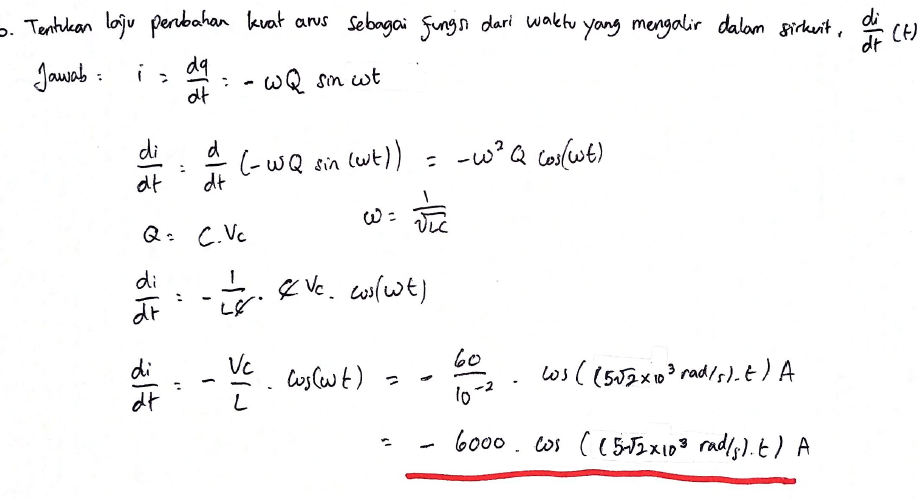 b. Tentukan laju perubahan kuat arus sebagai fungsi dari waktu yang mengalir dalam sirkuit, di/dt (t)
Jawab : i = dq/dt = - ωQ sin ωt
di/dt = d/dt (-ωQ sin (ωt)) = -ω² Q cos(ωt)
Q = C.Vc ω = 1/√LC
di/dt = - 1/LC . C Vc . cos(ωt)
di/dt = - Vc/L . cos(ωt) = - 60/10⁻² . cos((5√2 x 10³ rad/s).t) A
= - 6000 . cos ((5√2 x 10³ rad/s).t) A